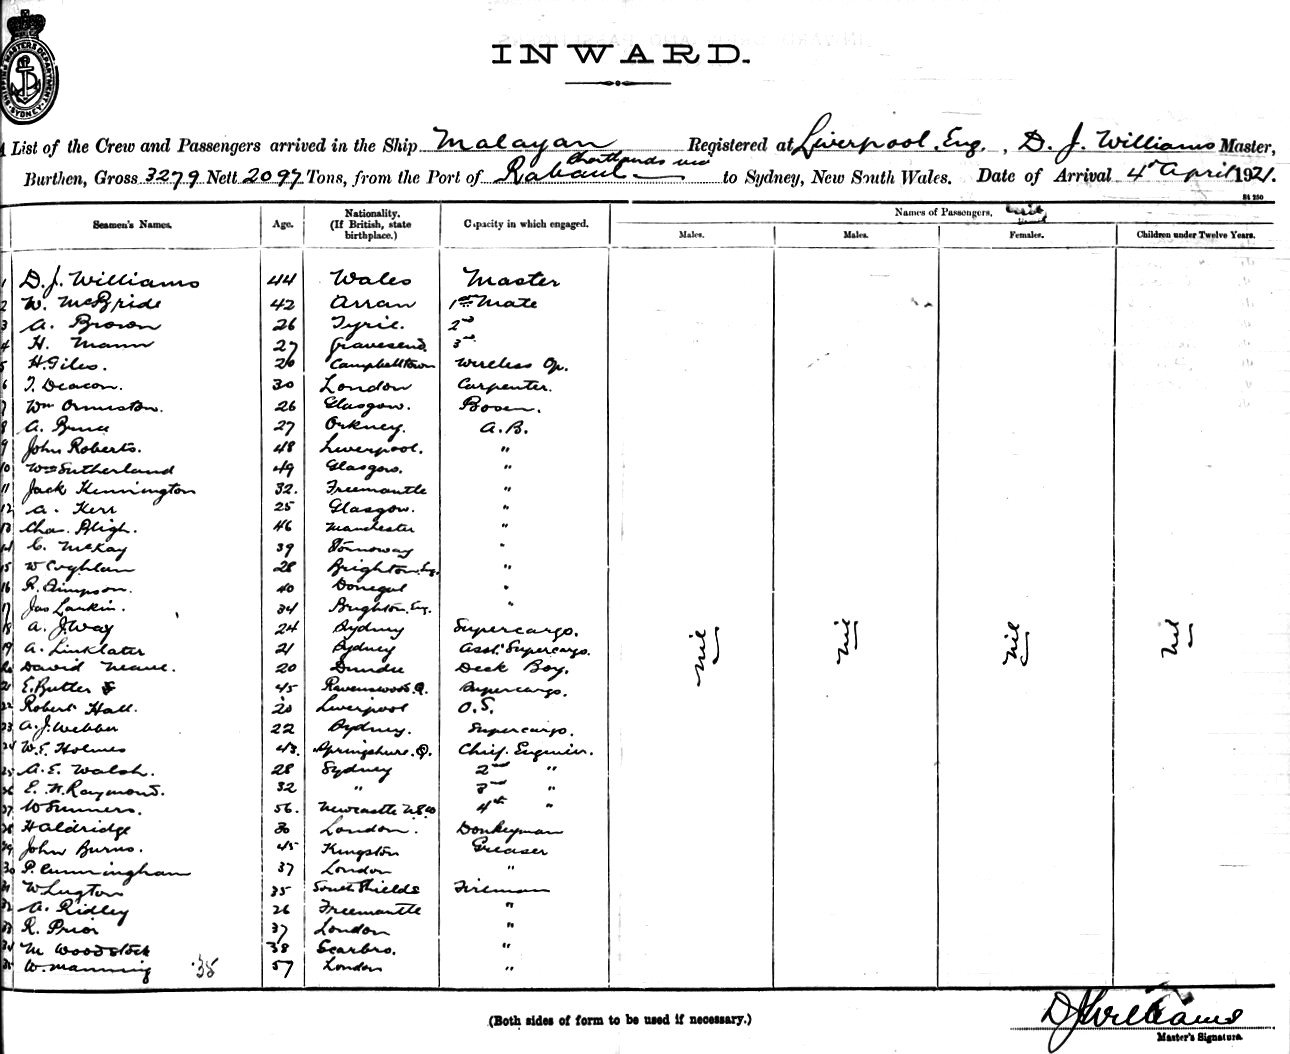 SHIPPING MASTERS DEPARTMENT SYDNEY
INWARD.
List of the Crew and Passengers arrived in the Ship Malayan Registered at Liverpool. Eng., D. J. Williams Master,
Burthen, Gross 3279 Nett 2097 Tons, from the Port of Rabaul via to Sydney, New South Wales. Date of Arrival 4th April 1921.
Seamen's Names. Age. Nationality. (If British, state birthplace.) Capacity in which engaged. Names of Passengers,
Males. Males. Females. Children under Twelve Years.
1 D. J. Williams 44 Wales Master
2 W. McBride 42 Arran 1st Mate
3 A. Brown 26 Tyrie. 2nd
4 H. Mann 27 Gravesend 3rd
5 H. Giles. 20 Campbelltown Wireless Op.
6 T. Deacon. 30 London Carpenter.
7 Wm Ormiston. 26 Glasgow. Bosen.
8 A. Bruce 27 Orkney. A.B.
9 John Roberts. 48 Liverpool. "
10 Wm Sutherland 49 Glasgow. "
11 Jack Kennington 32. Freemantle "
12 A. Kerr 25 Glasgow. "
13 Chas. Bligh. 46 Manchester "
14 C. McKay 39 Stornoway "
15 W Coghlan 28 Brighton. Eg. "
16 R. Simpson. 40 Donegal "
17 Jas Larkin. 34 Brighton. Eng. "
18 A. J. Way 24 Sydney Supercargo.
19 A. Linklater 21 Sydney Asst. Supercargo.
20 David Neave. 20 Dundee Deck Boy.
21 E. Butler 45 Ravenswood. Q. Supercargo.
22 Robert Hall. 20 Liverpool O.S.
23 A. J. Webber 22 Sydney. Supercargo.
24 W. E. Holmes 43. Springsure. Q. Chief. Engineer.
25 A. E. Walsh. 28 Sydney 2nd "
26 E. H. Raymond. 32 " 3rd "
27 W Summers. 56. Newcastle NSW 4th "
28 H Aldridge 30 London. Donkeyman
29 John Burns. 45 Kingston Greaser
30 P. Cunningham 37 London "
31 W Lugton 35 South Shields Fireman
32 A. Ridley 26 Freemantle "
33 R. Prior 37 London "
34 M Woodstock 38 Scarbro. "
35 W. Manning 35 57 London "
nil nil nil nil
(Both sides of form to be used if necessary.)
D J Williams
Master's Signature.